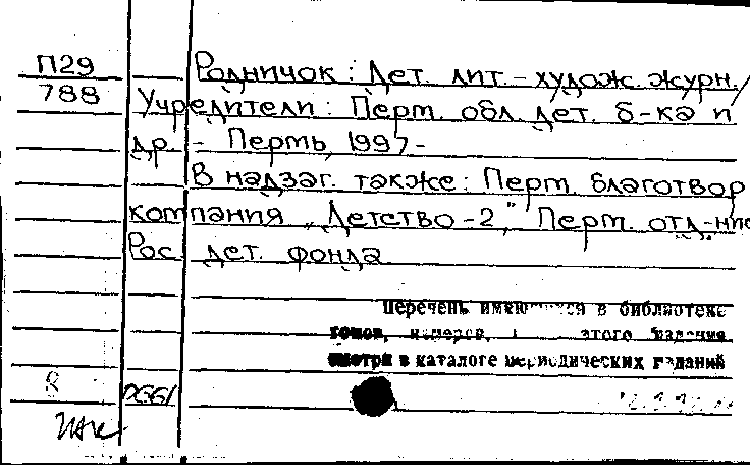 П29
788
Родничок: Дет. лит.-худож. журн. /
Учредители: Перм. обл. дет. б-ка и
др. - Пермь, 1997-
В надзаг. также: Перм. благотвор
компания „Детство-2”, Перм. отд-ние
Рос. дет. фонда
Перечень имеющихся в библиотеке
томов, номеров, этого издания
смотри в каталоге периодических изданий
8